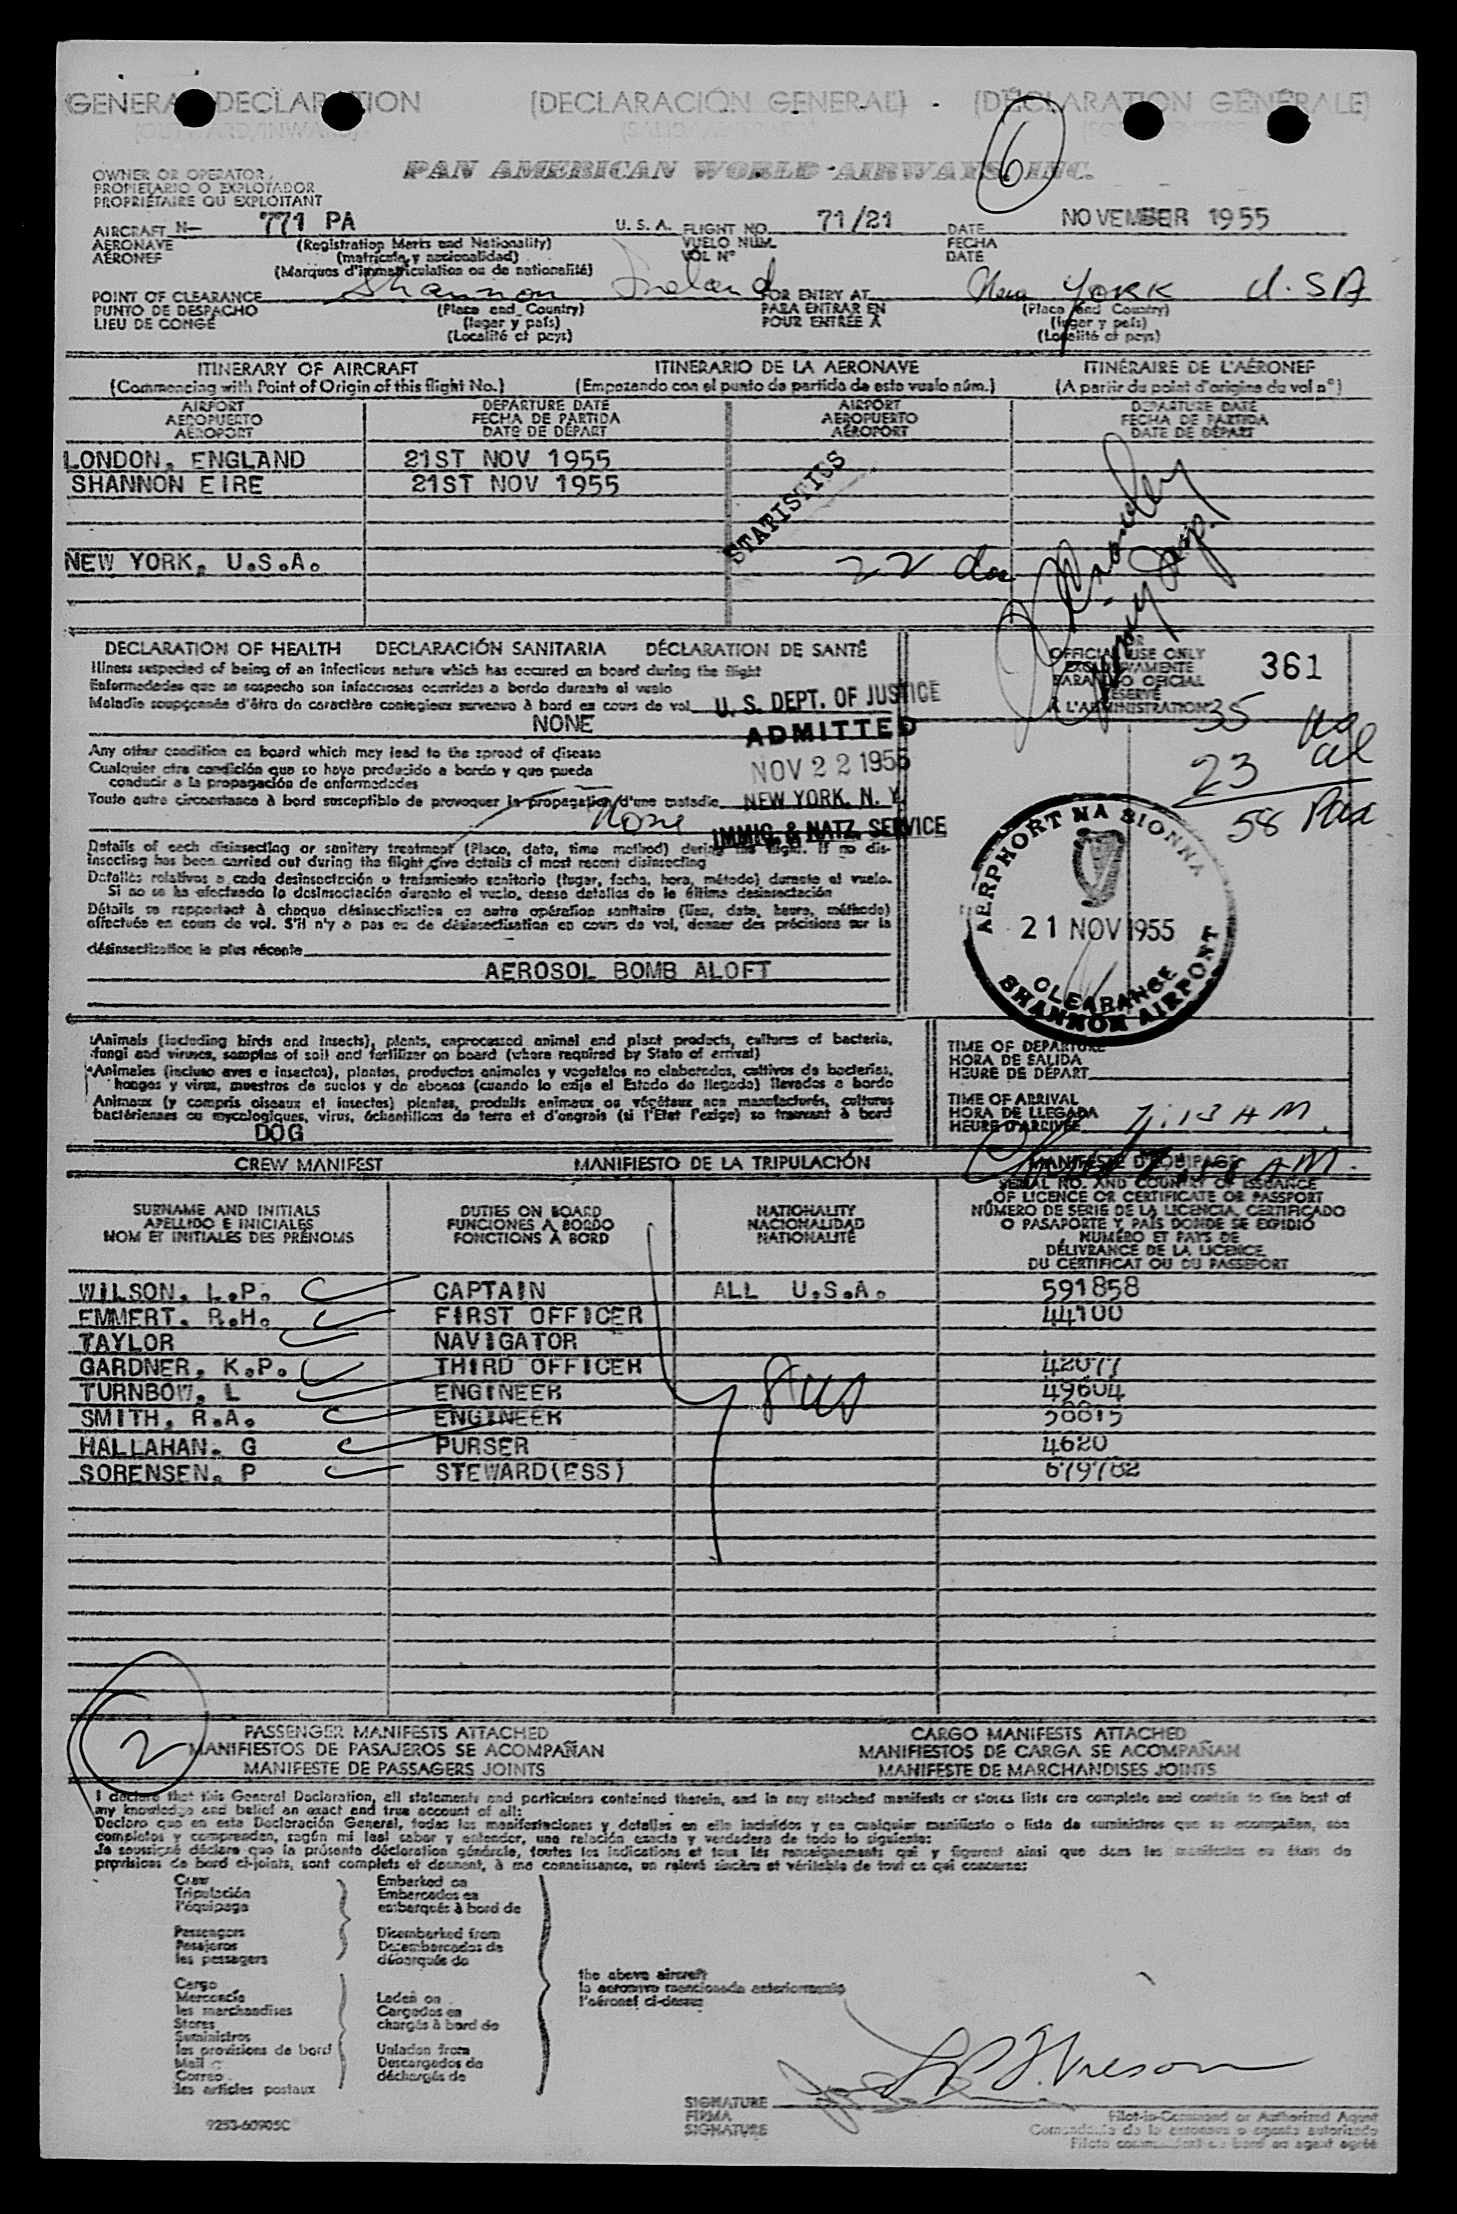 GENERAL DECLARATION (DECLARACIÓN GENERAL) (DÉCLARATION GÉNÉRALE)
6
PAN AMERICAN WORLD AIRWAYS, INC.
OWNER OR OPERATOR
PROPIETARIO O EXPLOTADOR
PROPRIÉTAIRE OU EXPLOITANT
AIRCRAFT N- 771 PA U. S. A. FLIGHT NO. 71/21 DATE NOVEMBER 1955
AERONAVE (Registration Marks and Nationality) VUELO NÚM. FECHA
AÉRONEF (matrícula y nacionalidad) VOL N° DATE
(Marques d'immatriculation ou de nationalité)
POINT OF CLEARANCE Shannon Ireland FOR ENTRY AT New York U.S.A
PUNTO DE DESPACHO (Place and Country) PARA ENTRAR EN (Place and Country)
LIEU DE CONGÉ (lugar y país) POUR ENTRÉE À (lugar y país)
(Localité et pays) (Localité et pays)
ITINERARY OF AIRCRAFT ITINERARIO DE LA AERONAVE ITINÉRAIRE DE L'AÉRONEF
(Commencing with Point of Origin of this flight No.) (Empezando con el punto de partida de este vuelo núm.) (A partir du point d'origine du vol n°)
AIRPORT DEPARTURE DATE AIRPORT DEPARTURE DATE
AEROPUERTO FECHA DE PARTIDA AEROPUERTO FECHA DE PARTIDA
AÉROPORT DATE DE DÉPART AÉROPORT DATE DE DÉPART
LONDON, ENGLAND 21ST NOV 1955
SHANNON EIRE 21ST NOV 1955
STATISTICS
NEW YORK, U.S.A.
22
DECLARATION OF HEALTH DECLARACIÓN SANITARIA DÉCLARATION DE SANTÉ
Illness suspected of being of an infectious nature which has occured on board during the flight
Enfermedades que se sospecha son infecciosas ocurridas a bordo durante el vuelo
Maladie soupçonnée d'être de caractère contagieux survenue à bord en cours de vol
NONE
FOR
OFFICIAL USE ONLY
EXCLUSIVAMENTE
PARA USO OFICIAL
RÉSERVÉ
À L'ADMINISTRATION
361
35
23 al
58 Pax
U. S. DEPT. OF JUSTICE
ADMITTED
NOV 22 1955
NEW YORK, N. Y.
IMMIG. & NATZ. SERVICE
Any other condition on board which may lead to the spread of disease
Cualquier otra condición que se haya producido a bordo y que pueda
conducir a la propagación de enfermedades
Toute autre circonstance à bord susceptible de provoquer la propagation d'une maladie
None
Details of each disinsecting or sanitary treatment (Place, date, time method) during the flight. If no dis-
insecting has been carried out during the flight give details of most recent disinsecting
Detalles relativos a cada desinsectación o tratamiento sanitario (lugar, fecha, hora, método) durante el vuelo.
Si no se ha efectuado la desinsectación durante el vuelo, dense detalles de la última desinsectación
Détails se rapportant à chaque désinsectisation ou autre opération sanitaire (lieu, date, heure, méthode)
effectuée en cours de vol. S'il n'y a pas eu de désinsectisation en cours de vol, donner des précisions sur la
désinsectisation la plus récente
AEROSOL BOMB ALOFT
AERPHORT NA SIONNA
21 NOV 1955
CLEARANCE
SHANNON AIRPORT
Animals (including birds and insects), plants, unprocessed animal and plant products, cultures of bacteria,
fungi and viruses, samples of soil and fertilizer on board (where required by State of arrival)
Animales (incluso aves e insectos), plantas, productos animales y vegetales no elaborados, cultivos de bacterias,
hongos y virus, muestras de suelos y de abonos (cuando lo exija el Estado de llegada) llevados a bordo
Animaux (y compris oiseaux et insectes) plantes, produits animaux ou végétaux non manufacturés, cultures
bactériennes ou mycologiques, virus, échantillons de terre et d'engrais (si l'Etat l'exige) se trouvant à bord
DOG
TIME OF DEPARTURE
HORA DE SALIDA
HEURE DE DÉPART
TIME OF ARRIVAL
HORA DE LLEGADA
HEURE D'ARRIVÉE 7:13 AM.
CREW MANIFEST MANIFIESTO DE LA TRIPULACIÓN MANIFESTE D'ÉQUIPAGE
SURNAME AND INITIALS DUTIES ON BOARD NATIONALITY SERIAL NO. AND COUNTRY OF ISSUANCE
APELLIDO E INICIALES FUNCIONES A BORDO NACIONALIDAD OF LICENCE OR CERTIFICATE OR PASSPORT
NOM ET INITIALES DES PRÉNOMS FONCTIONS À BORD NATIONALITÉ NÚMERO DE SERIE DE LA LICENCIA, CERTIFICADO
O PASAPORTE Y PAÍS DONDE SE EXPIDIÓ
NUMÉRO ET PAYS DE
DÉLIVRANCE DE LA LICENCE,
DU CERTIFICAT OU DU PASSEPORT
WILSON, L.P. CAPTAIN ALL U.S.A. 591858
EMMERT, R.H. FIRST OFFICER 44100
TAYLOR NAVIGATOR
GARDNER, K.P. THIRD OFFICER 42077
TURNBOW, L ENGINEER 49604
SMITH, R.A. ENGINEER
HALLAHAN, G PURSER 4620
SORENSEN, P STEWARD(ESS) 679782
2
PASSENGER MANIFESTS ATTACHED CARGO MANIFESTS ATTACHED
MANIFIESTOS DE PASAJEROS SE ACOMPAÑAN MANIFIESTOS DE CARGA SE ACOMPAÑAN
MANIFESTE DE PASSAGERS JOINTS MANIFESTE DE MARCHANDISES JOINTS
I declare that this General Declaration, all statements and particulars contained therein, and in any attached manifests or stores lists are complete and contain to the best of
my knowledge and belief an exact and true account of all:
Declaro que en esta Declaración General, todas las manifestaciones y detalles en ella incluidos y en cualquier manifiesto o lista de suministros que se acompañan, son
completos y comprenden, según mi leal saber y entender, una relación exacta y verdadera de todo lo siguiente:
Je soussigné déclare que la présente déclaration générale, toutes les indications et tous les renseignements qui y figurent ainsi que dans les manifestes ou états de
provisions de bord ci-joints, sont complets et donnent, à ma connaissance, un relevé sincère et véritable de tout ce qui concerne:
Crew Embarked on
Tripulación Embarcados en
l'équipage embarqués à bord de
Passengers Disembarked from
Pasajeros Desembarcados de
les passagers débarqués de
the above aircraft
la aeronave mencionada anteriormente
l'aéronef ci-dessus
Cargo
Mercancía Laden on
les marchandises Cargados en
Stores chargés à bord de
Suministros
les provisions de bord Unladen from
Mail Descargados de
Correo déchargés de
les articles postaux
SIGNATURE
FIRMA
SIGNATURE
Pilot-in-Command or Authorized Agent
Comandante de la aeronave o agente autorizado
Pilote commandant de bord ou agent agréé
9253-60905C